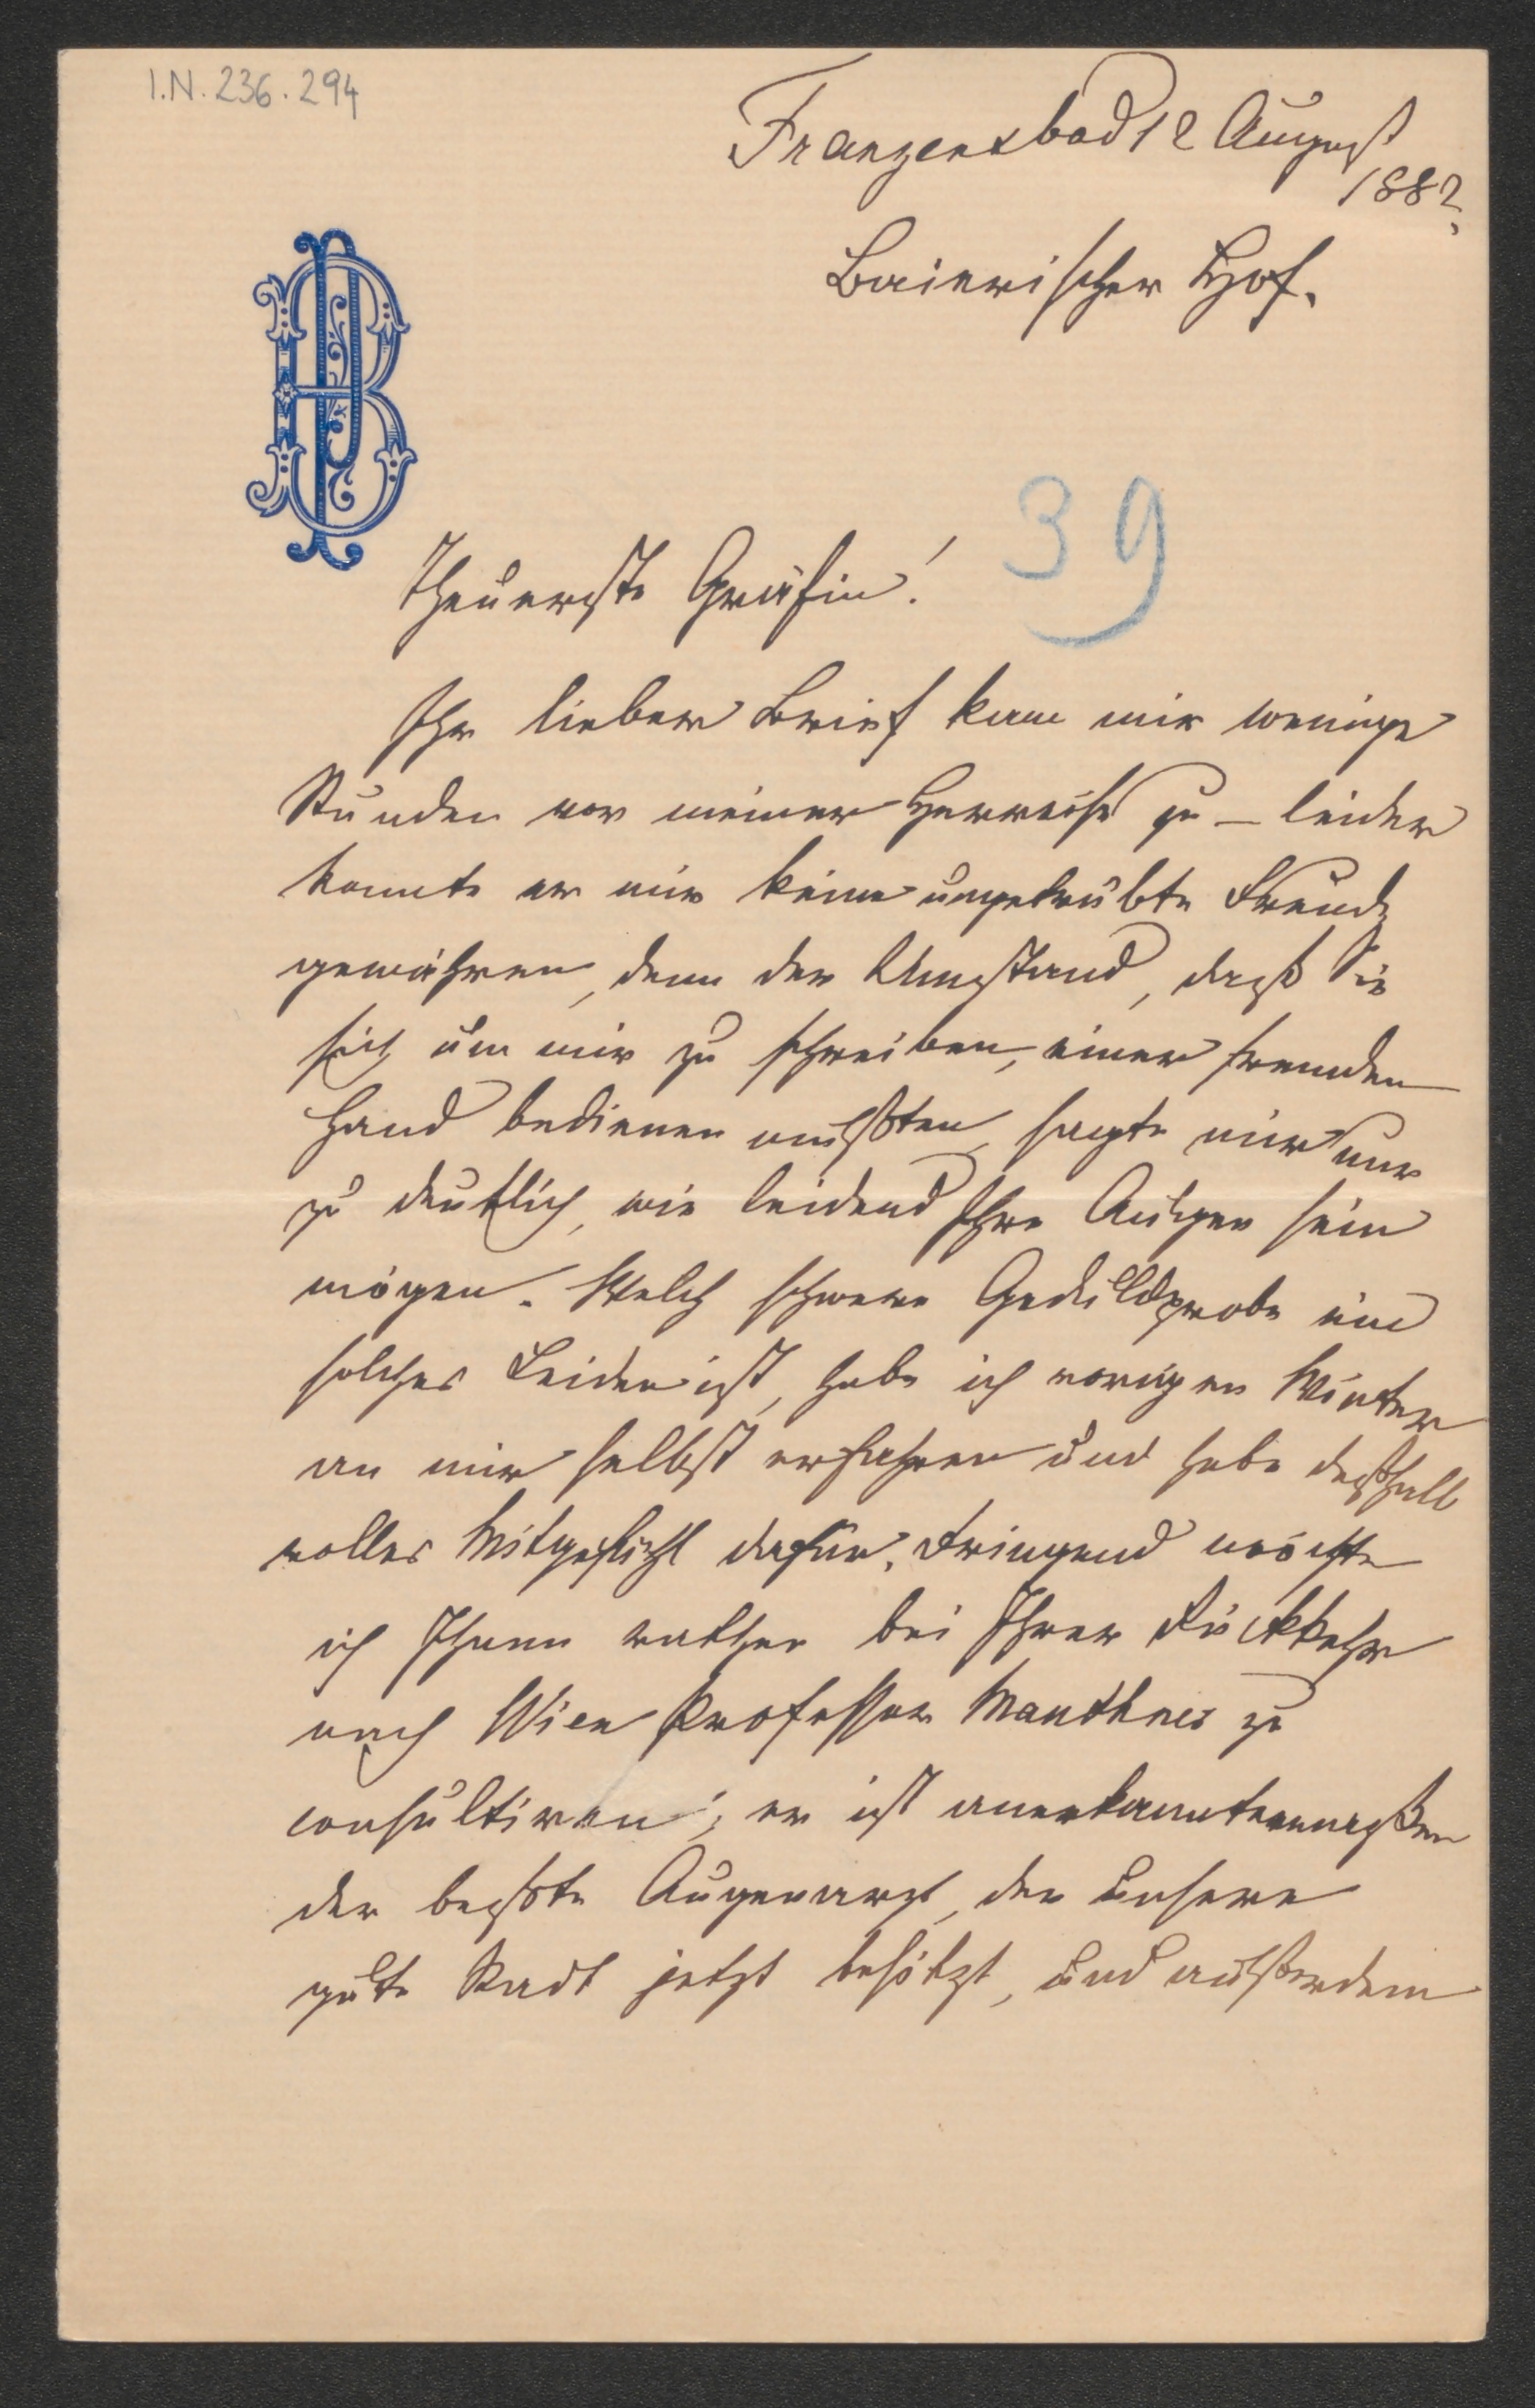 I.N. 236.294
Franzensbad 12 August
1882.
Bairischer Hof.
39
Theuerste Gräfin!
Ihr lieber Brief kam mir wenige
Stunden vor meiner Herreise zu – leider
konnte er mir keine ungetrübte Freude
gewähren, denn der Umstand, daß Sie
sich um mir zu schreiben, einer fremden
Hand bedienen mußten, sagte mir nur
zu deutlich, wie leidend Ihre Augen sein
mögen. Welch schwere Geduldprobe ein
solches Leiden ist, habe ich vorigen Winter
an mir selbst erfahren und habe deßhalb
volles Mitgefühl dafür. Dringend möchte
ich Ihnen rathen bei Ihrer Rückkehr
nach Wien Professor Mauthner zu
consultiren; er ist anerkanntermaßen
der beßte Augenarzt, den unsere
gute Stadt jetzt besitzt, und außerdem